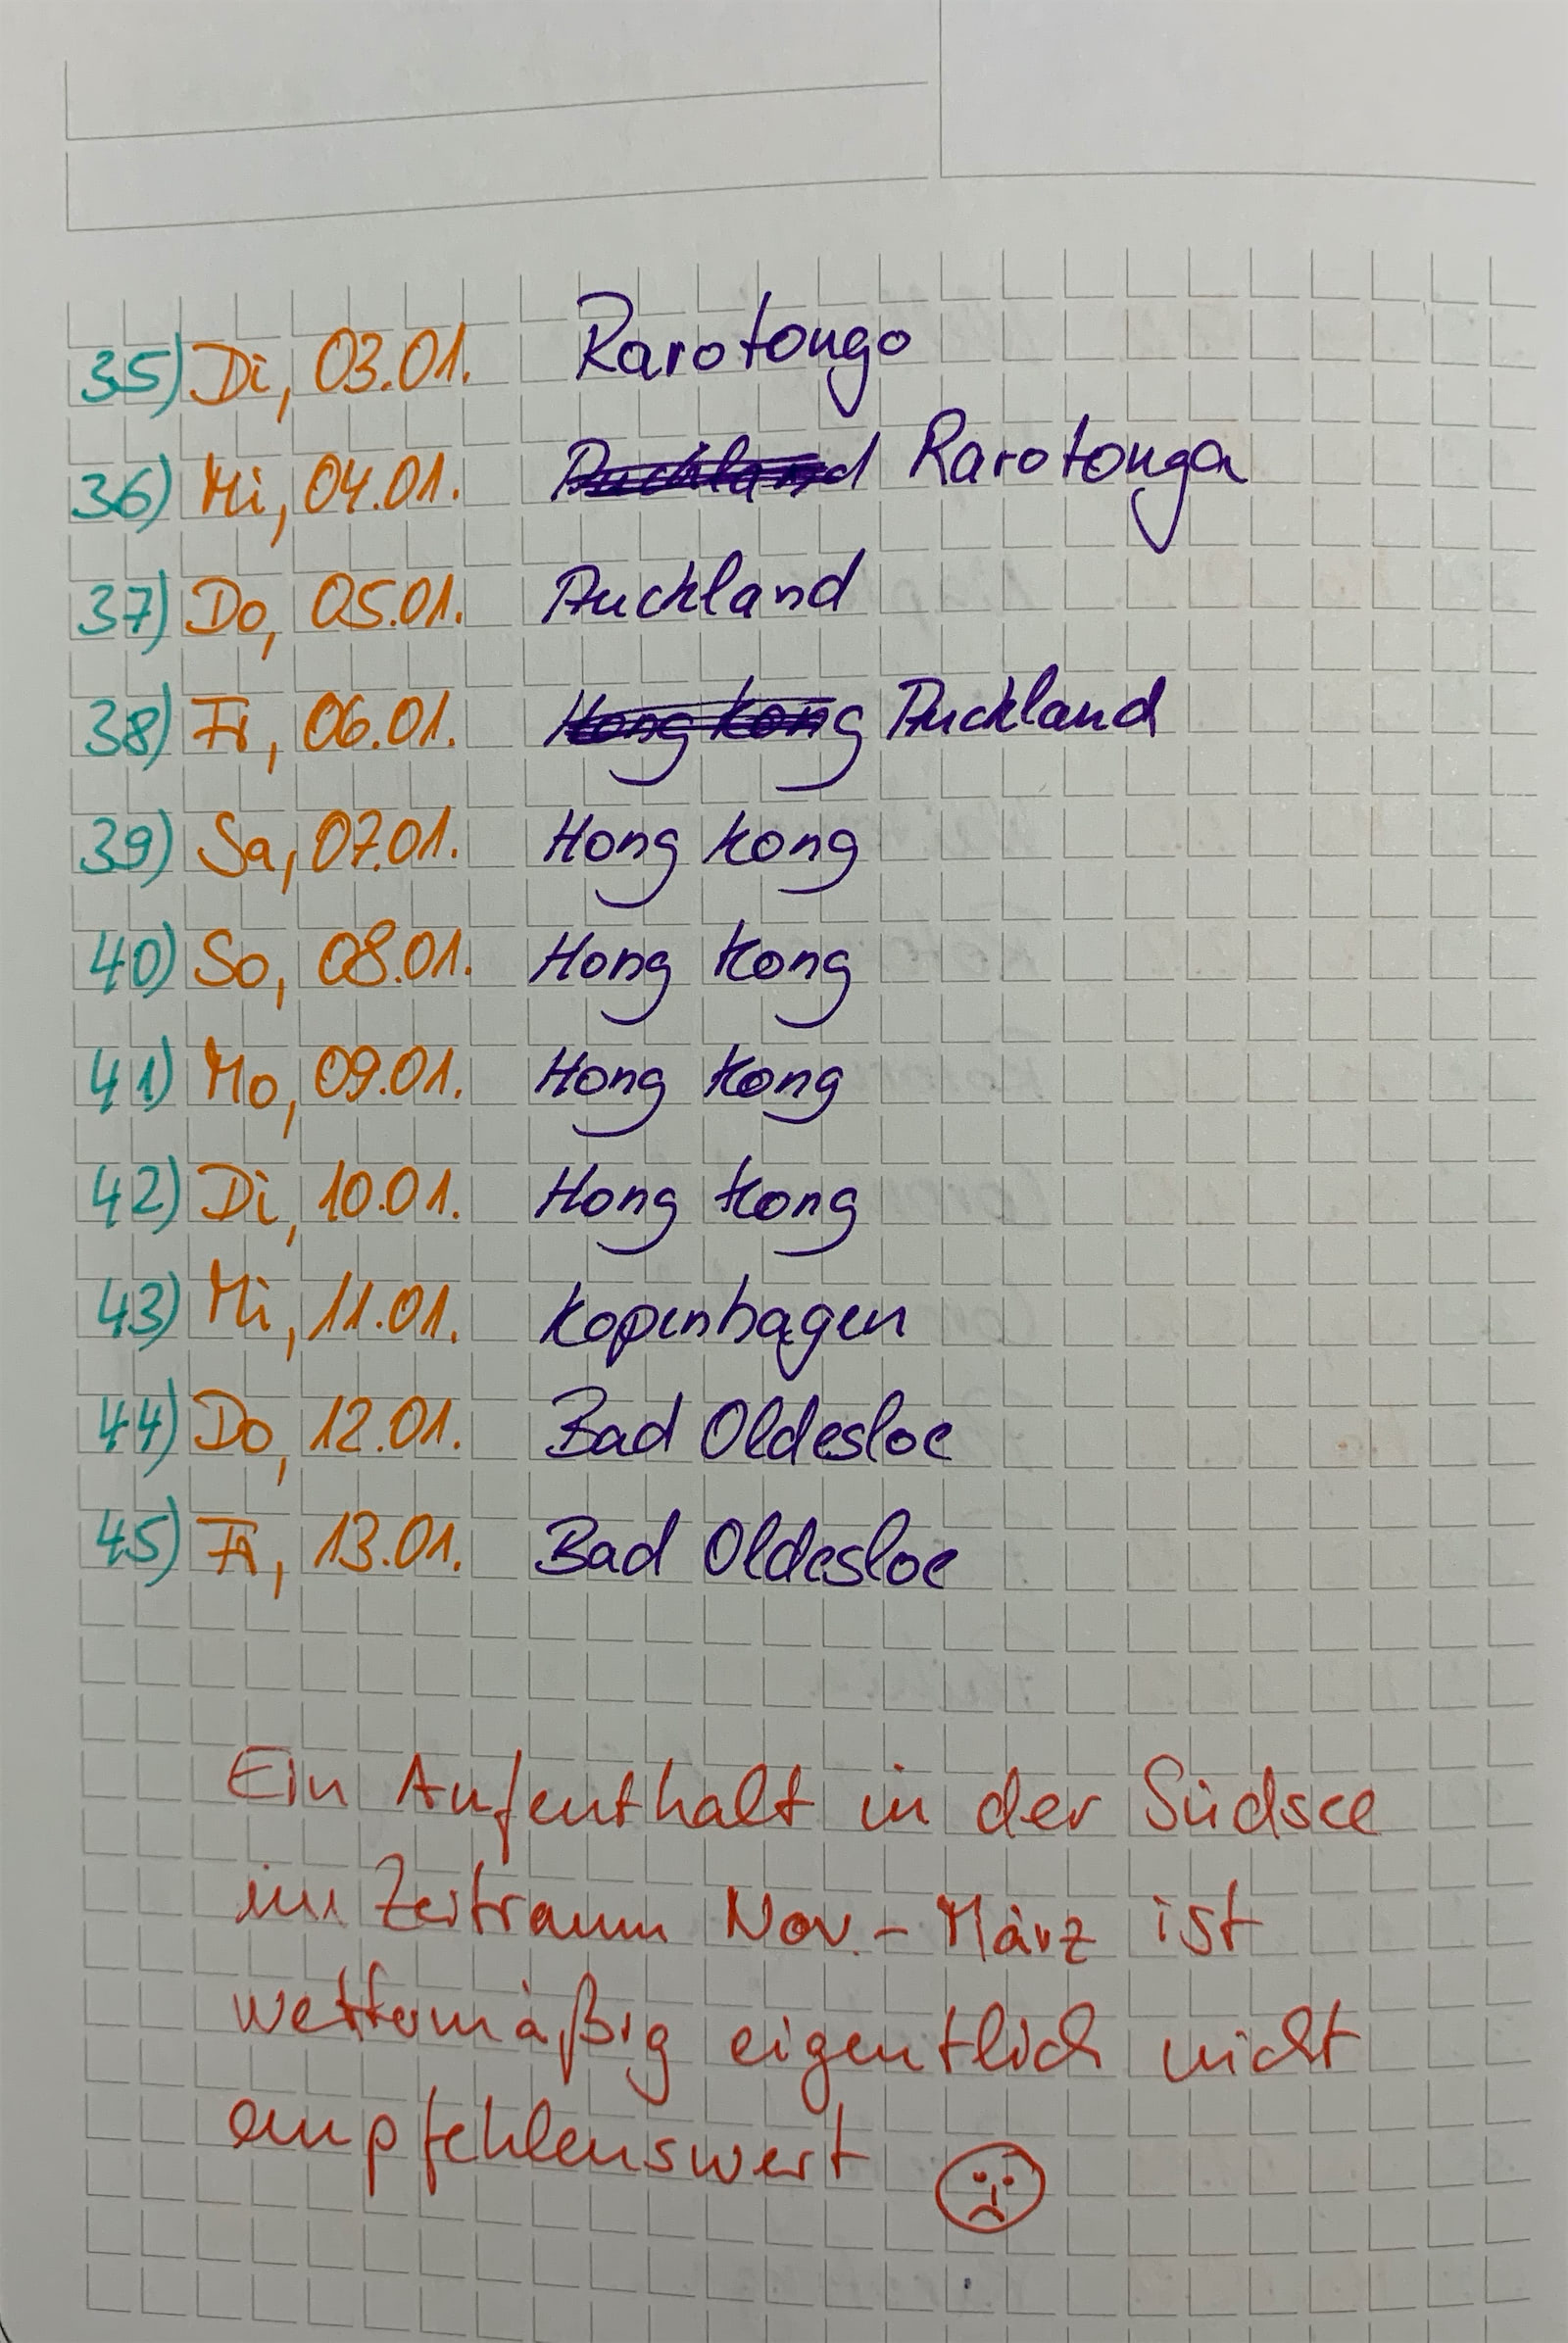 35) Di, 03.01. Rarotongo
36) Mi, 04.01. Auckland Rarotonga
37) Do, 05.01. Auckland
38) Fr, 06.01. Hong Kong Auckland
39) Sa, 07.01. Hong Kong
40) So, 08.01. Hong Kong
41) Mo, 09.01. Hong Kong
42) Di, 10.01. Hong Kong
43) Mi, 11.01. Kopenhagen
44) Do, 12.01. Bad Oldesloe
45) Fr, 13.01. Bad Oldesloe
Ein Aufenthalt in der Südsee
im Zeitraum Nov. - März ist
wettermäßig eigentlich nicht
empfehlenswert